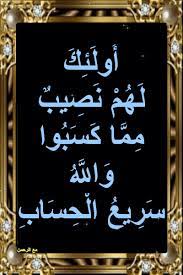 أُولَئِكَ
لَهُمْ نَصِيبٌ
مِمَّا كَسَبُوا
وَاللَّهُ
سَرِيعُ الْحِسَابِ
مع الرحمن